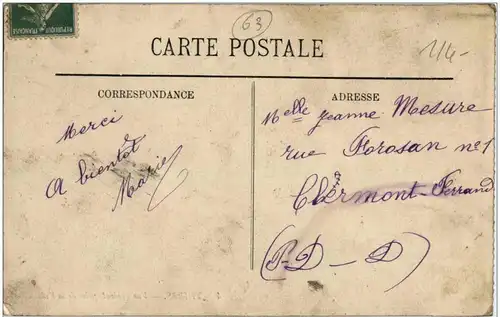 REPUBLIQUE FRANÇAISE
63
CARTE POSTALE
1/4-
CORRESPONDANCE
ADRESSE
Merci
A bientôt
Marie
Melle Jeanne Mesure
rue Forosan n° 1
Clermont-Ferrand
(P-D-D)